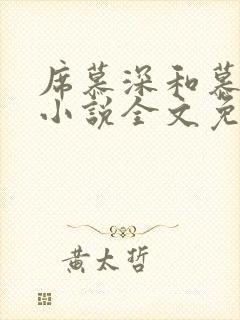 席慕深和慕
小说全文免
黄太哲